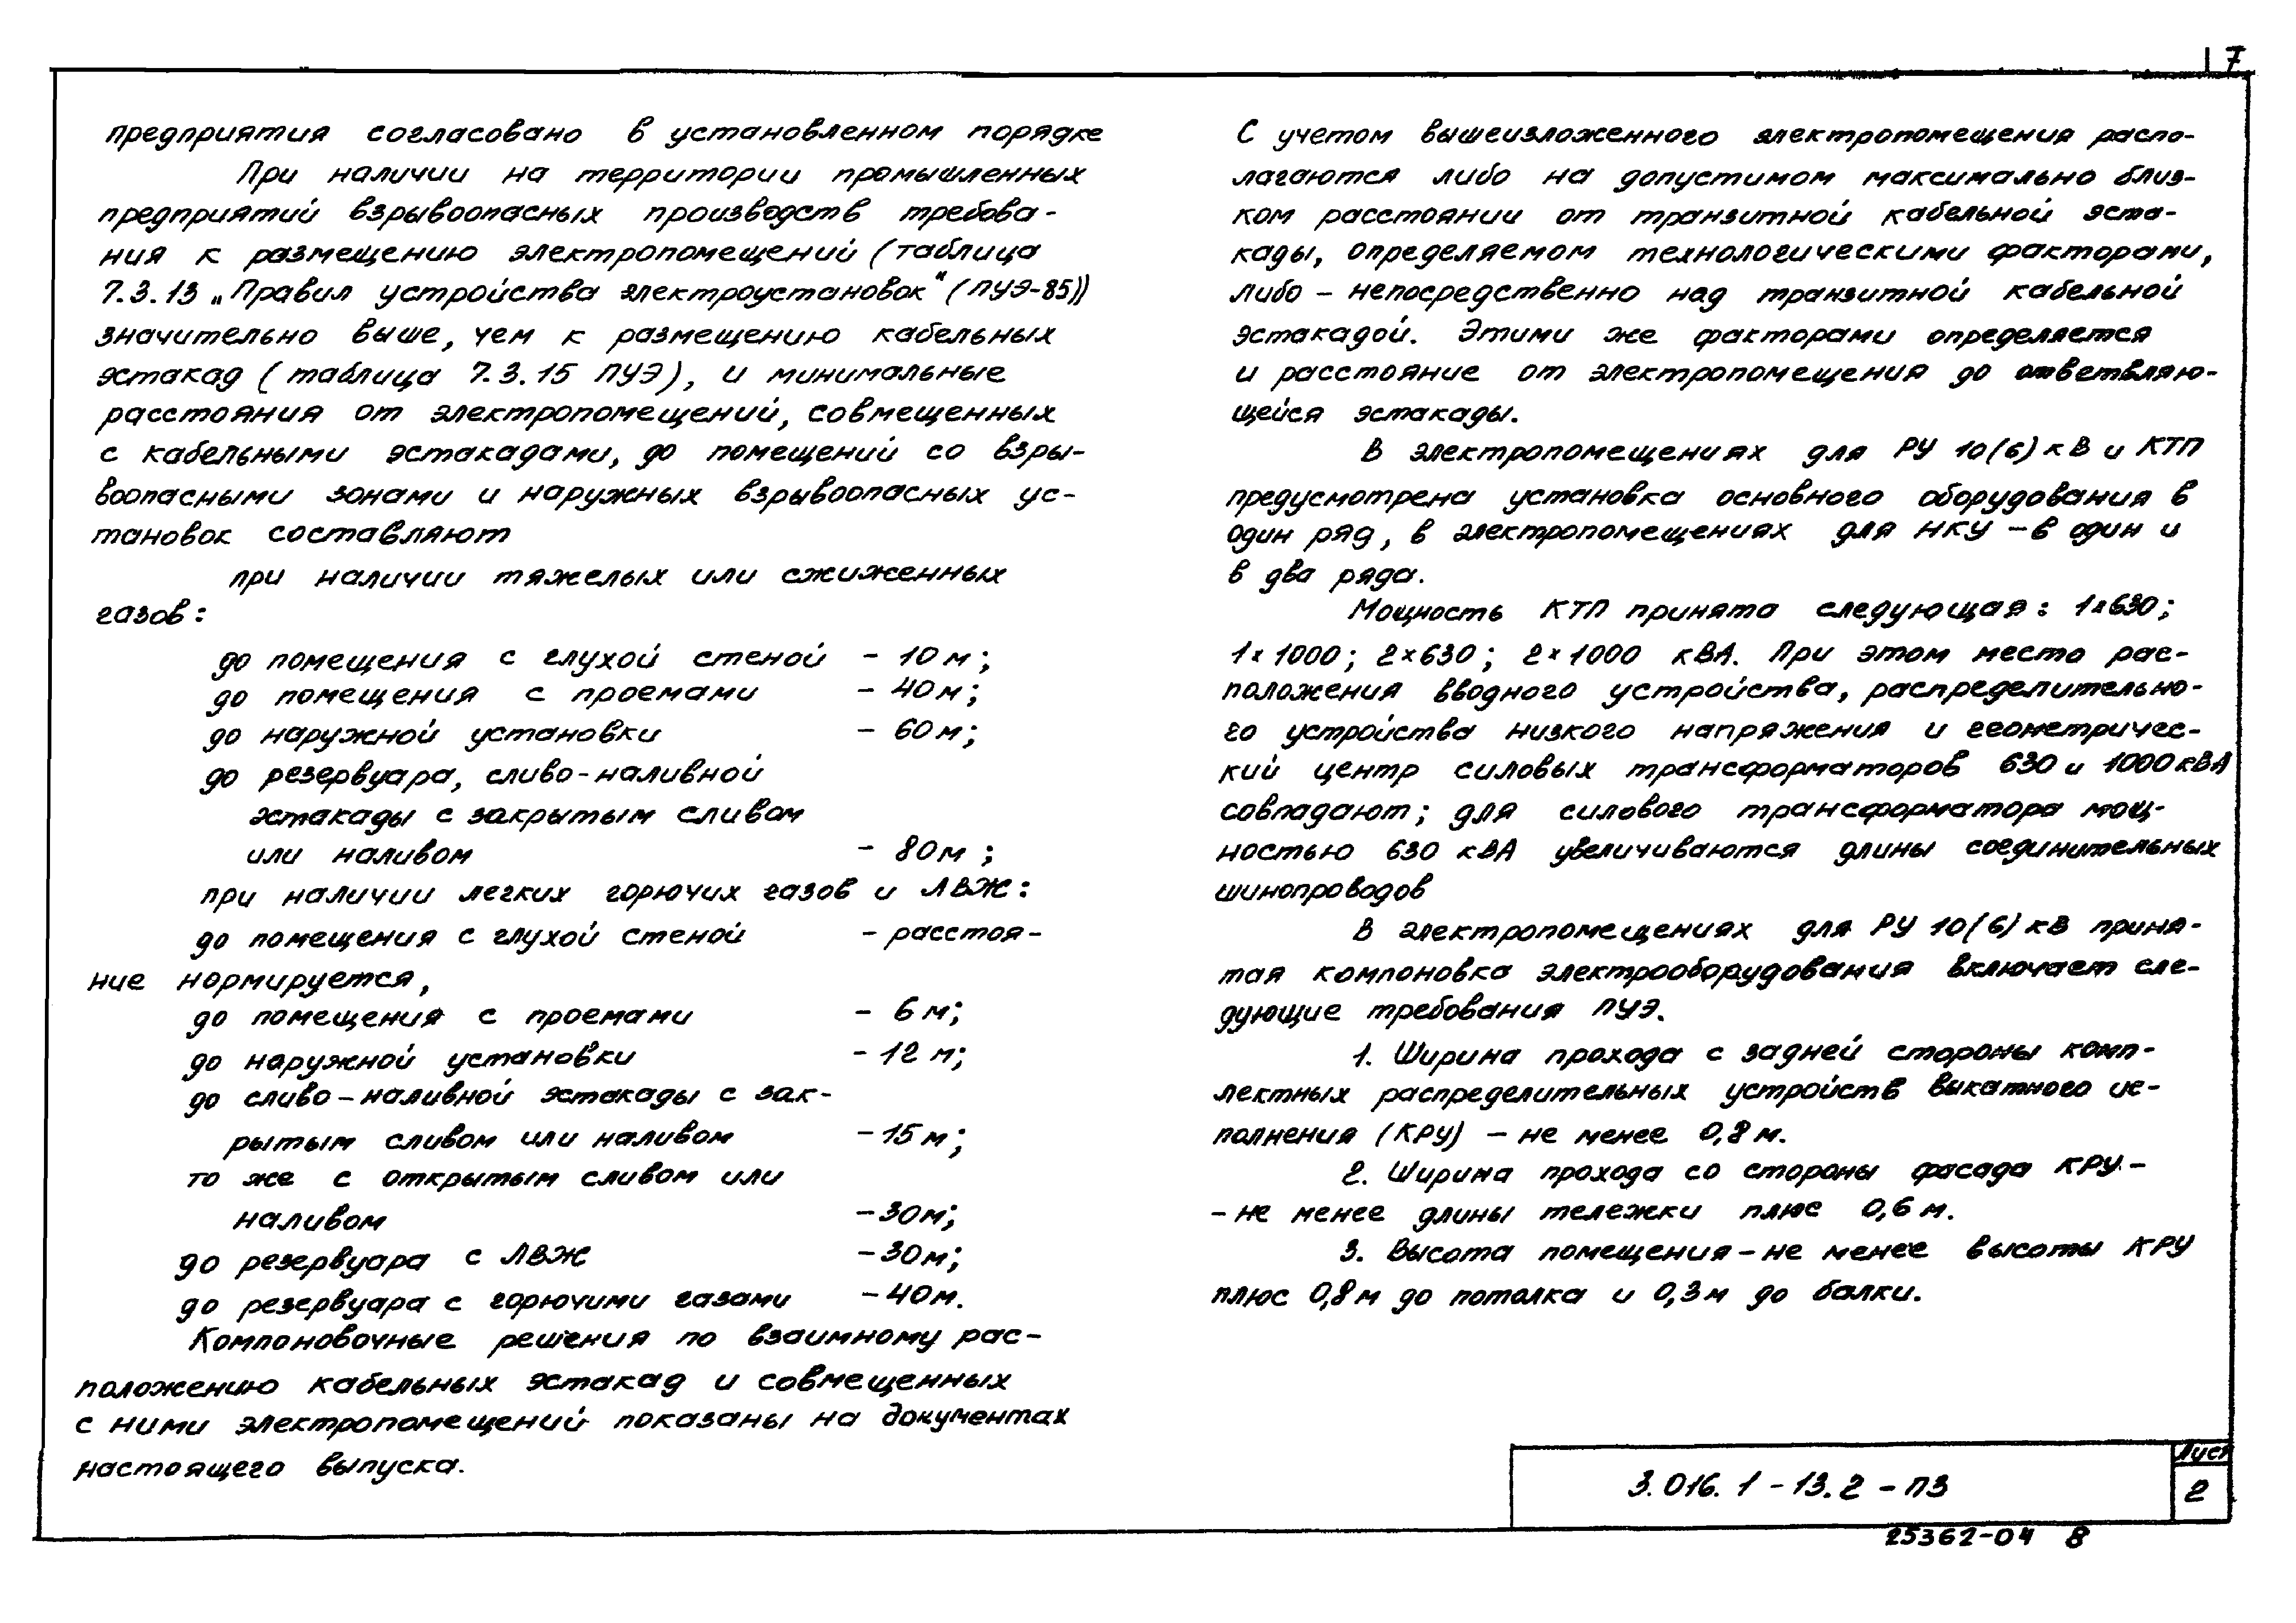 7
предприятия согласовано в установленном порядке
При наличии на территории промышленных
предприятий взрывоопасных производств требова-
ния к размещению электропомещений (таблица
7.3.13 „Правил устройства электроустановок" (ПУЭ-85))
значительно выше, чем к размещению кабельных
эстакад (таблица 7.3.15 ПУЭ), и минимальные
расстояния от электропомещений, совмещенных
с кабельными эстакадами, до помещений со взры-
воопасными зонами и наружных взрывоопасных ус-
тановок составляют
при наличии тяжелых или сжиженных
газов:
до помещения с глухой стеной - 10 м;
до помещения с проемами - 40 м;
до наружной установки - 60 м;
до резервуара, сливо-наливной
эстакады с закрытым сливом
или наливом - 80 м;
при наличии легких горючих газов и ЛВЖ:
до помещения с глухой стеной - расстоя-
ние нормируется,
до помещения с проемами - 6 м;
до наружной установки - 12 м;
до сливо-наливной эстакады с зак-
рытым сливом или наливом - 15 м;
то же с открытым сливом или
наливом - 30 м;
до резервуара с ЛВЖ - 30 м;
до резервуара с горючими газами - 40 м.
Компоновочные решения по взаимному рас-
положению кабельных эстакад и совмещенных
с ними электропомещений показаны на документах
настоящего выпуска.
С учетом вышеизложенного электропомещения распо-
лагаются либо на допустимом максимально близ-
ком расстоянии от транзитной кабельной эста-
кады, определяемом технологическими факторами,
либо - непосредственно над транзитной кабельной
эстакадой. Этими же факторами определяется
и расстояние от электропомещения до ответвляю-
щейся эстакады.
В электропомещениях для РУ 10(6) кВ и КТП
предусмотрена установка основного оборудования в
один ряд, в электропомещениях для НКУ - в один и
в два ряда.
Мощность КТП принята следующая: 1×630;
1×1000; 2×630; 2×1000 кВА. При этом место рас-
положения вводного устройства, распределительно-
го устройства низкого напряжения и геометричес-
кий центр силовых трансформаторов 630 и 1000 кВА
совпадают; для силового трансформатора мощ-
ностью 630 кВА увеличиваются длины соединительных
шинопроводов
В электропомещениях для РУ 10(6) кВ приня-
тая компоновка электрооборудования включает сле-
дующие требования ПУЭ.
1. Ширина прохода с задней стороны комп-
лектных распределительных устройств выкатного ис-
полнения (КРУ) - не менее 0,8 м.
2. Ширина прохода со стороны фасада КРУ -
- не менее длины тележки плюс 0,6 м.
3. Высота помещения - не менее высоты КРУ
плюс 0,8 м до потолка и 0,3 м до балки.
3.016.1-13.2-ПЗ
Лист
2
25362-04 8